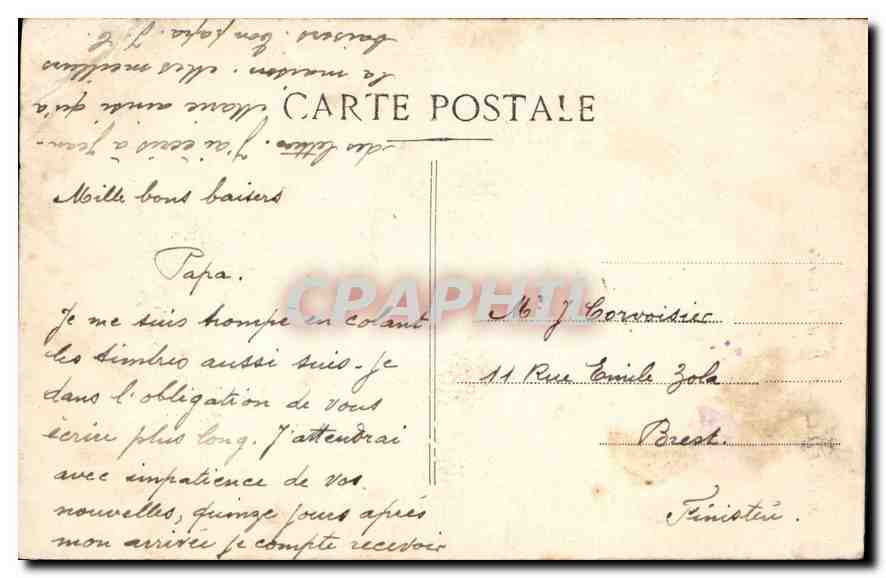 CARTE POSTALE
Mille bons baisers
Papa.
Je me suis trompé en colant
les timbres aussi suis-je
dans l'obligation de vous
écrire plus long. J'attendrai
avec impatience de vos
nouvelles, quinze jours après
mon arrivée je compte recevoir
des lettres. J'ai écris à Jean-
Marie ainsi qu'à
la maison. Mes meilleurs
baisers. bon papa. J. C.
CPAPHIL
Mr J Corvoisier
11 Rue Emile Zola
Brest.
Finistère.